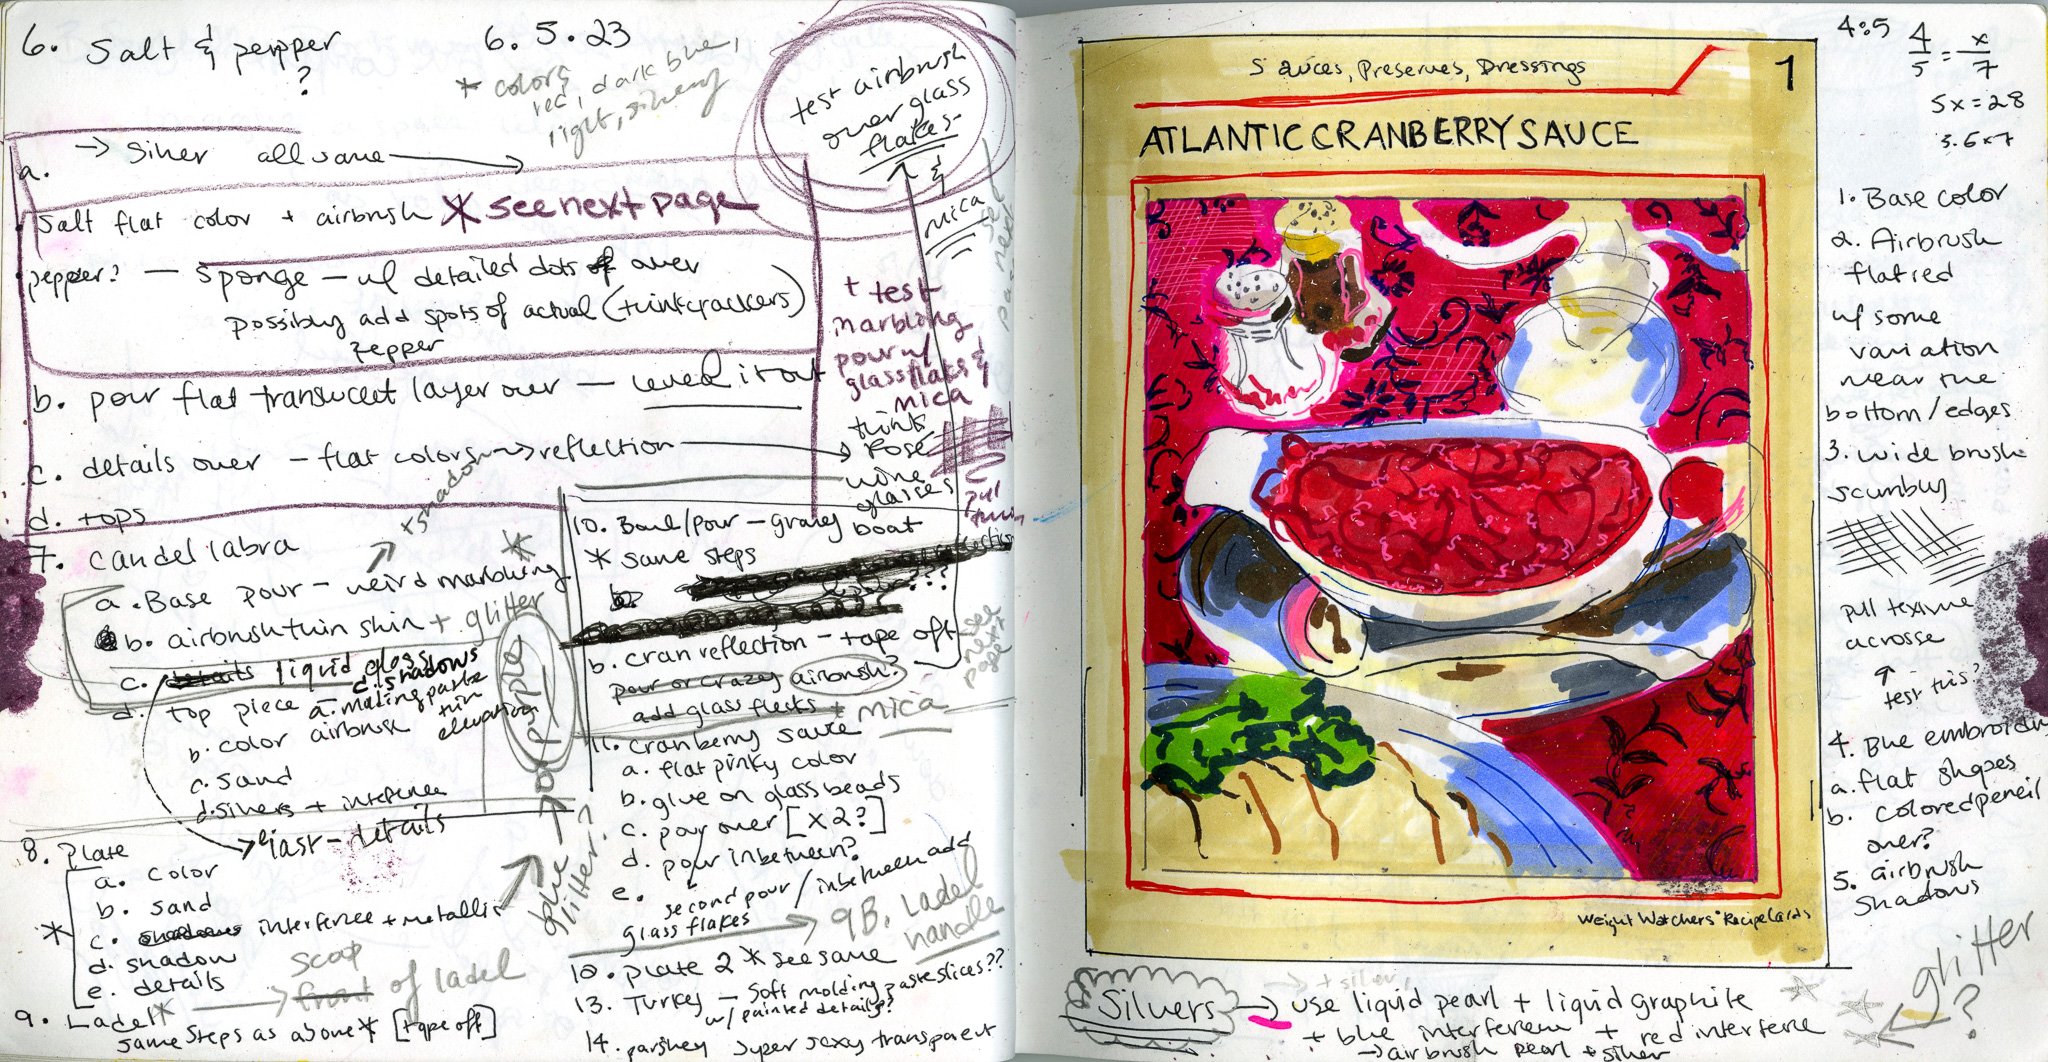 6. Salt & pepper
?
6.5.23
* colors
red, dark blue,
light, silvery
test airbrush
over glass
flakes
&
mica
see next page
a. → Silver all same →
Salt flat color + airbrush * see next page
pepper? — sponge — w/ detailed dots over
possibly add spots of actual (think crackers)
pepper
b. pour flat translucent layer over —
c. details over — flat colors → reflection
+ shadow
d. tops
+ test
marbling
pour w/
glass flakes &
mica
think
rose
wine
glasses
pull
thin
7. candel labra
a. Base pour — weird marbling *
b. airbrush thin skin + glitter
c. details liquid glass
c. shadows
d. top piece a. molding paste
thin
elevation
b. color airbrush
c. sand
d. silvers + interference
e. last - details
8. Plate
a. color
b. sand
* c. shadows interference + metallic
d. shadow
e. details
blue glitter?
9. Ladel* → scoop
front of ladel
same steps as above * [tape off]
10. Bowl/pour — gravy boat
* same steps
b.
???
b. cran reflection — tape off
pour or crazy airbrush?
add glass flecks + mica
see next page
11. cranberry sauce
a. flat pinky color
b. glue on glass beads
c. pour over [x 2?]
d. pour inbetween?
e. second pour / inbetween add
glass flakes
→ 9B. Ladel
handle
12. plate 2 * see same
13. Turkey — soft molding paste slices??
w/ painted details?
14. parsley super sexy transparent
Sauces, Preserves, Dressings
1
ATLANTIC CRANBERRY SAUCE
Weight Watchers® Recipe Cards
4:5
4/5 = x/7
5x = 28
5.6 x 7
1. Base color
2. Airbrush
flat red
w/ some
variation
near the
bottom/edges
3. wide brush
scumbly
pull texture
acrosse
↑
test this?
4. Blue embroidery
a. flat shapes
b. colored pencil
over?
5. airbrush
shadows
glitter
?
→ + silver,
Silvers → use liquid pearl + liquid graphite
+ blue interference + red interference
→ airbrush pearl + silver